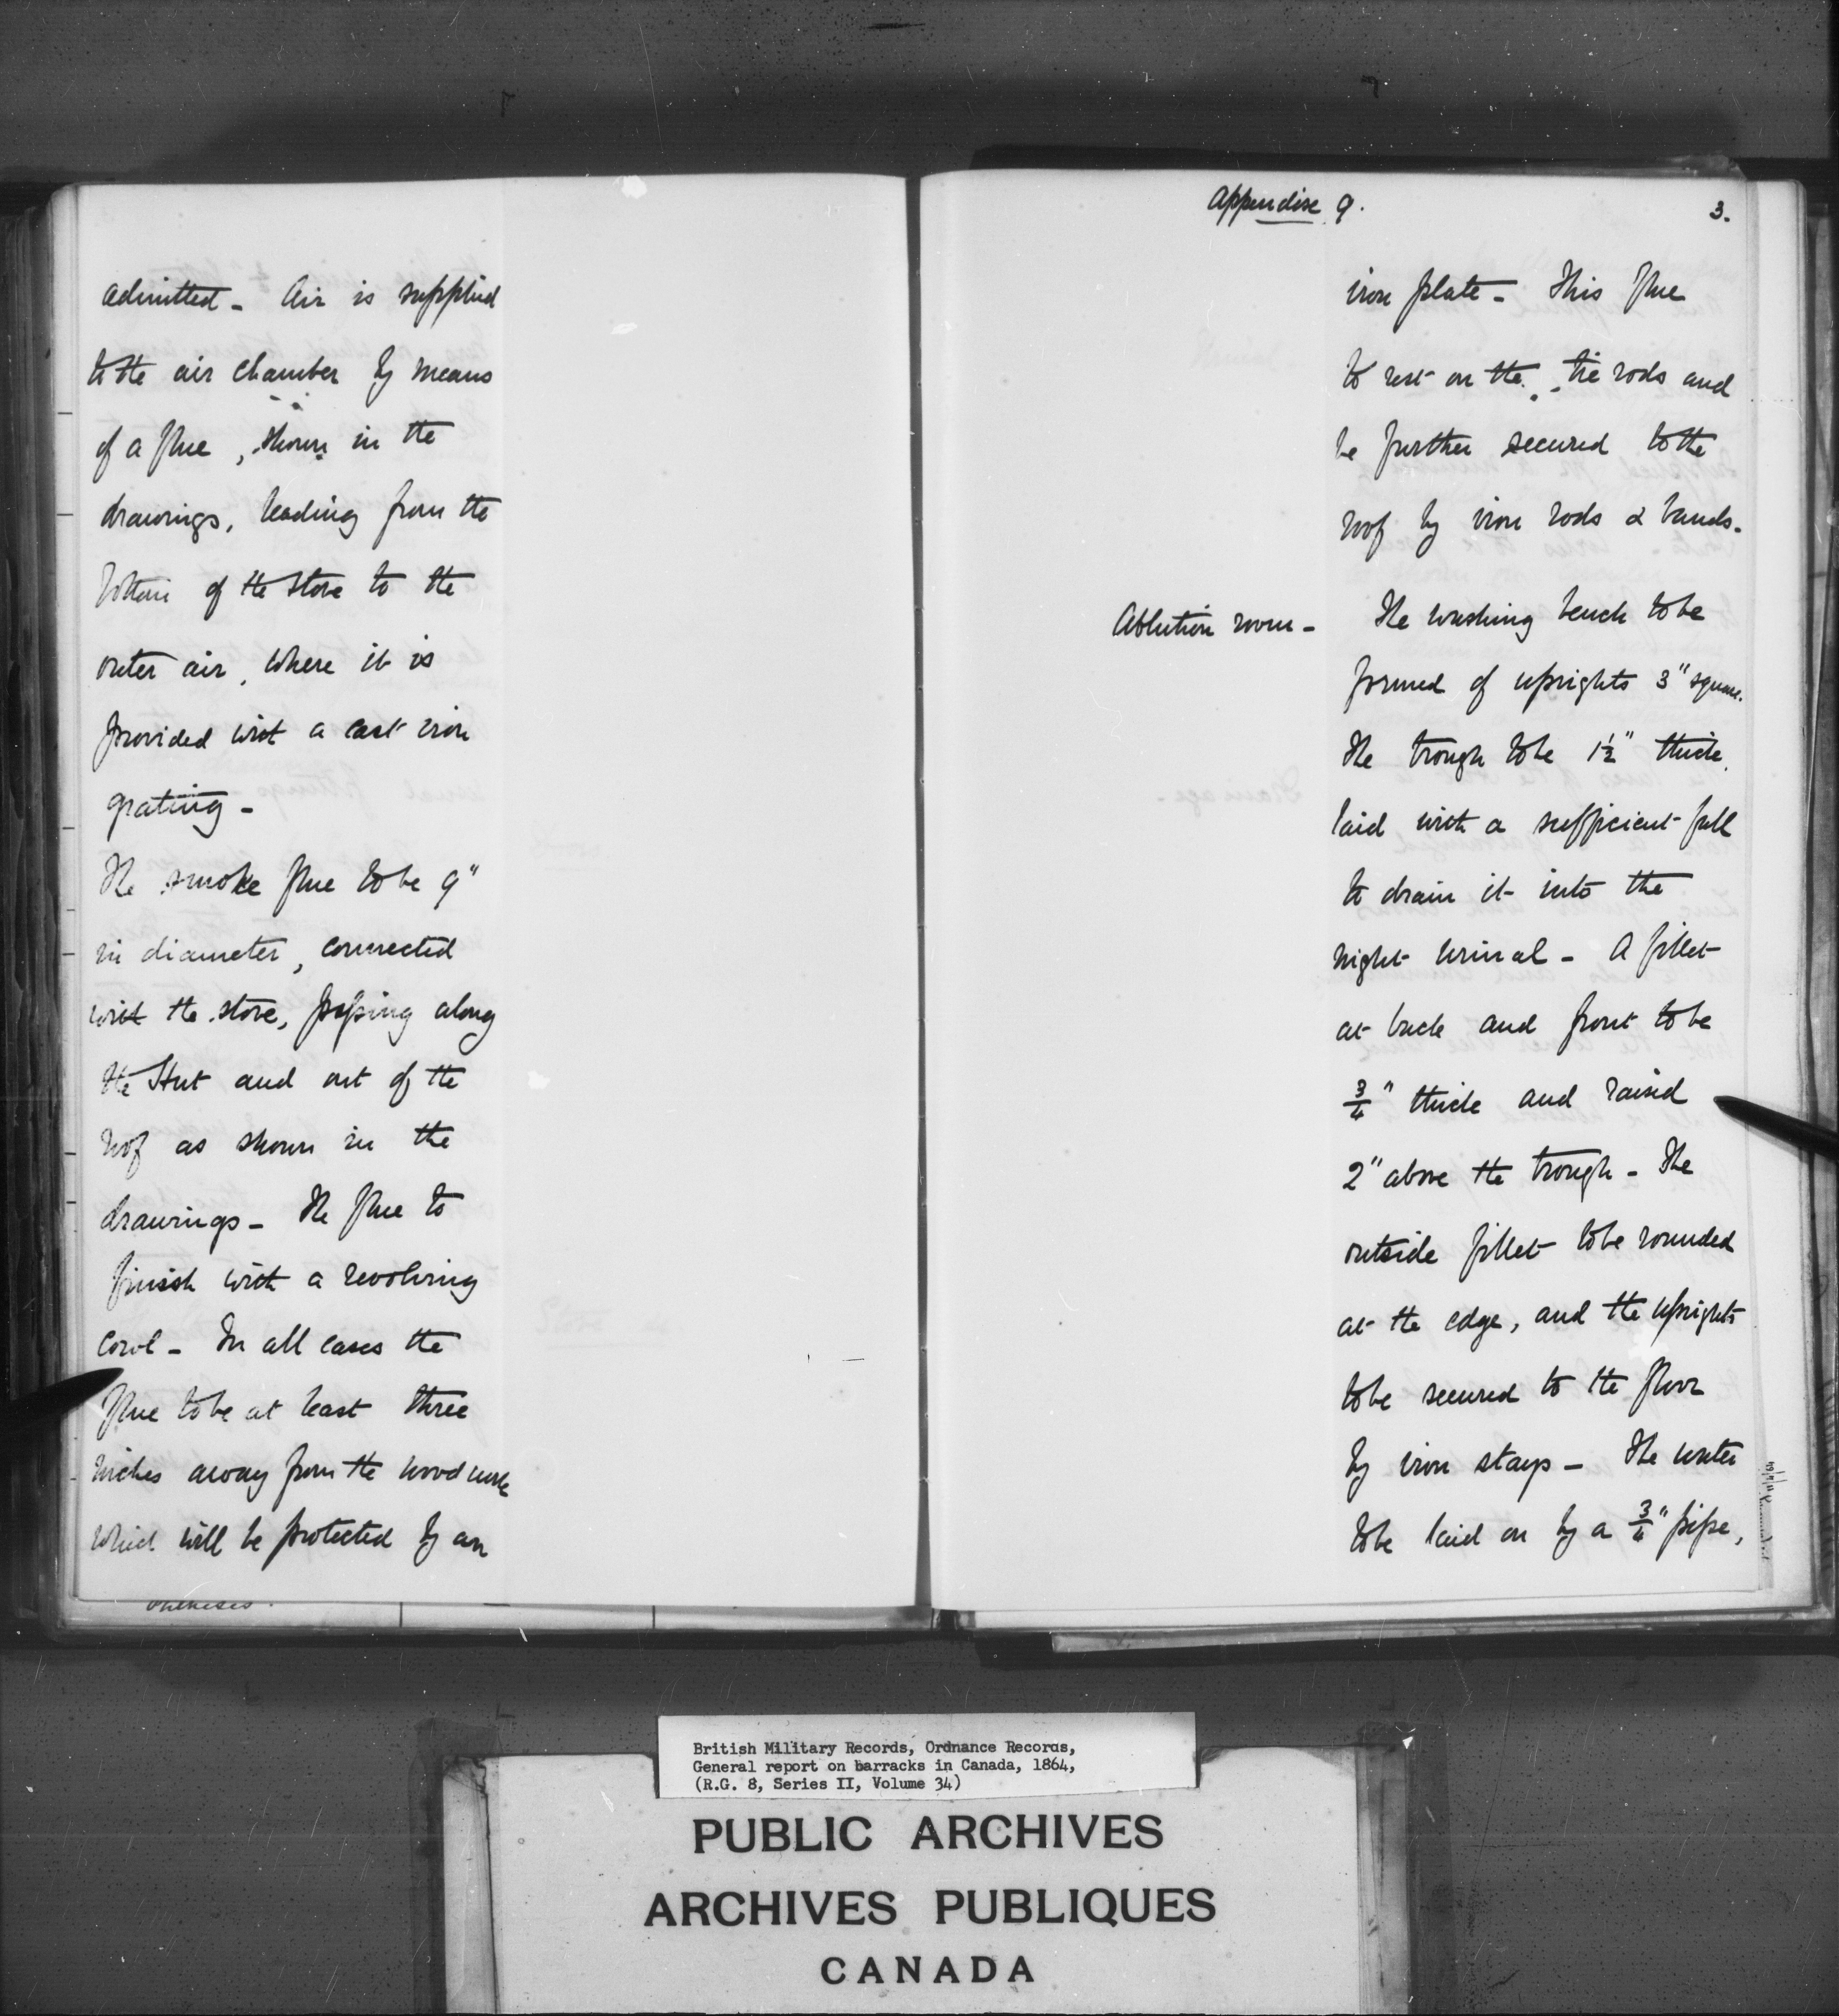 admitted - Air is supplied
to the air chamber by means
of a flue, shown in the
drawings, leading from the
bottom of the stove to the
outer air, where it is
provided with a cast iron
grating -
The smoke flue to be 9"
in diameter, connected
with the stove, passing along
the Hut and out of the
roof as shown in the
drawings - The flue to
finish with a revolving
cowl - In all cases the
flue to be at least three
inches away from the wood work
which will be protected by an
Appendix 9.
3.
iron plate - This flue
to rest on the tie rods and
be further secured to the
roof by iron rods & bands -
Ablution room - The washing bench to be
formed of uprights 3" square.
The trough to be 1½" thick,
laid with a sufficient fall
to drain it into the
night urinal - A fillet
at back and front to be
¾" thick and raised
2" above the trough - The
outside fillet to be rounded
at the edge, and the uprights
to be secured to the floor
by iron stays - The water
to be laid on by a ¾" pipe,
British Military Records, Ordnance Records,
General report on barracks in Canada, 1864,
(R.G. 8, Series II, Volume 34)
PUBLIC ARCHIVES
ARCHIVES PUBLIQUES
CANADA